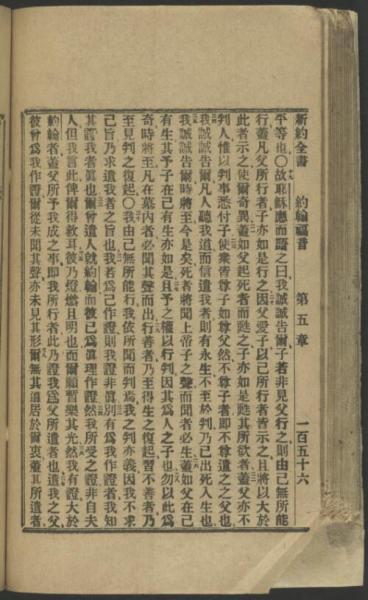 新約全書　約翰福音　第五章　一百五十六
平等也○故耶穌應而語之曰我誠誠告爾子若非見父行之則由己無所能
行蓋凡父所行者子亦如是行之因父愛子以己所行者皆示之且將以大於
此者示之使爾奇異蓋如父起死者而甦之子亦如是甦其所欲者蓋父亦不
判人惟以判事悉付子使衆皆尊子如尊父然不尊子者即不尊遣之之父也
我誠誠告爾凡人聽我道而信遣我者則有永生不至於判乃已出死入生也
我誠誠告爾時將至今是矣死者將聞上帝子之聲而聞者必生蓋如父在己
有生其予子在己有生亦如是且予之權以行判因其爲人之子也勿以此爲
奇時將至凡在墓內者必聞其聲而出行善者乃至得生之復起習不善者乃
至見判之復起○我由己無所能行我依所聞而判焉我之判亦義因我不求
己旨乃求遣我者之旨也我若爲己作證則我證非眞別有爲我作證者我知
其證我者眞也爾曾遣人就約翰而彼已爲眞理作證然我所受之證非自夫
人但我言此俾爾得救耳彼乃燈燃且明也而爾願暫樂其光然我有證大於
約翰者蓋父所予我成之事即我所行者此乃證我爲父所遣者也遣我之父
彼曾爲我作證爾從未聞其聲亦未見其形爾無其道居於爾衷蓋其所遣者